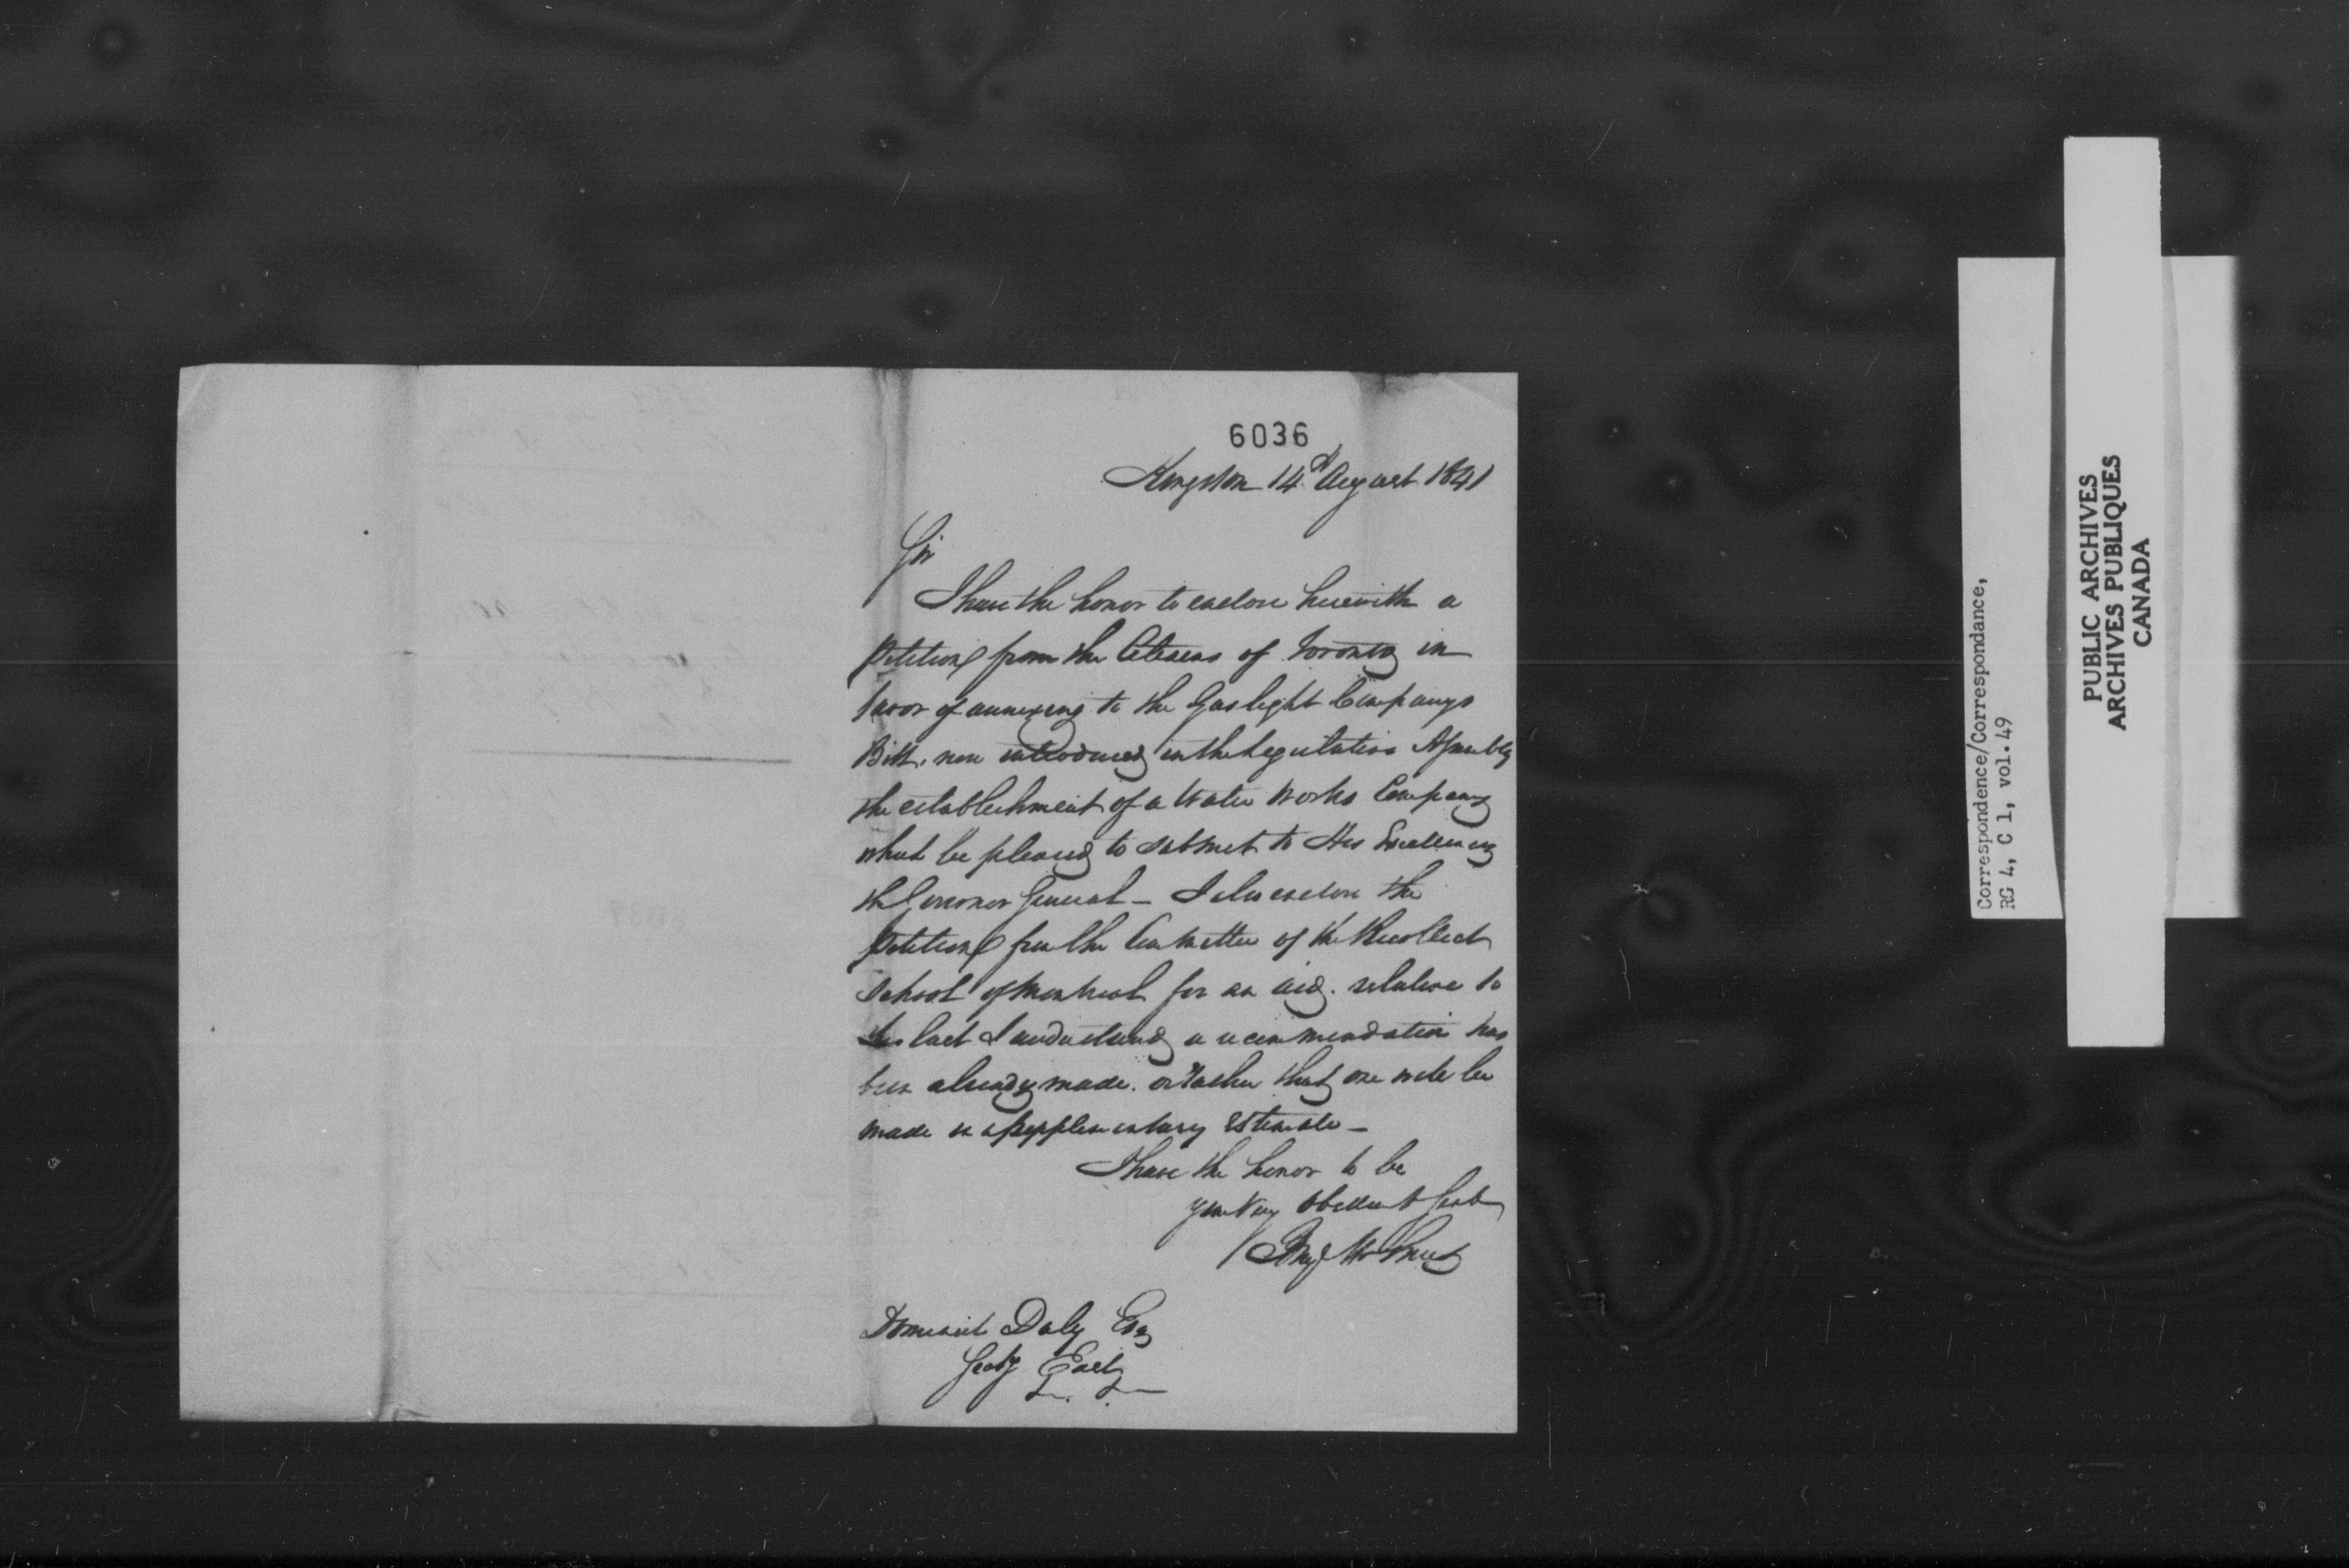 6036
Kingston 14th August 1841
Sir
I have the honor to enclose herewith a
Petition from the Citizens of Toronto in
favor of annexing to the Gas light Companys
Bill, now introduced in the Legislative Assembly
the establishment of a Water Works Company
what be pleased to submit to His Excellency
the Governor General — I also enclose the
Petition from the Committee of the Recollect
School of Montreal for an aid. relative to
this last I understand a recommendation has
been already made. or rather that one will be
made in a supplementary Estimate —
I have the honor to be
your very obedient Servt
Benj Holmes
Dominick Daly Esq
Secty East
Correspondence/Correspondance,
RG 4, C 1, vol. 49
PUBLIC ARCHIVES
ARCHIVES PUBLIQUES
CANADA